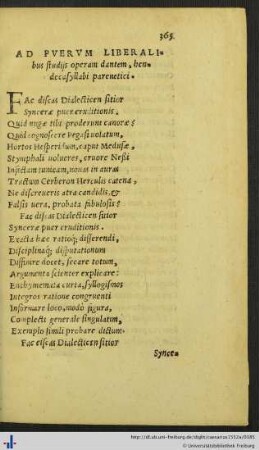 365
AD PVERVM LIBERALI-
bus studijs operam dantem, hen-
decasyllabi parenetici.
FAc discas Dialecticen sitior
Synceræ puer eruditionis,
Quid nugæ tibi proderunt canoræ?
Quid cognoscere Pegasi volatum,
Hortos Hesperidum, caput Medusæ,
Stymphali volucres, cruore Nessi
Infectam tunicam, nouas in auras
Tractum Cerberon Herculis catena,
Ne discreueris atra candidis, &
Falsis uera, probata fibulosis?
Fac discas Dialecticen sitior
Synceræ puer eruditionis.
Exacta hæc ratioq; disserendi,
Disciplinaq; disputationum
Dispure docet, secare totum,
Argumenta scienter explicare:
Enthymemata curta, syllogismos
Integros ratione congruenti
Informare loco, modo, figura,
Complecti generale singulatim,
Exemplo simili probare dictum.
Fac discas Dialecticen sitior
Synce-
http://dl.ub.uni-freiburg.de/diglit/caesarius1532a/0385
© Universitätsbibliothek Freiburg